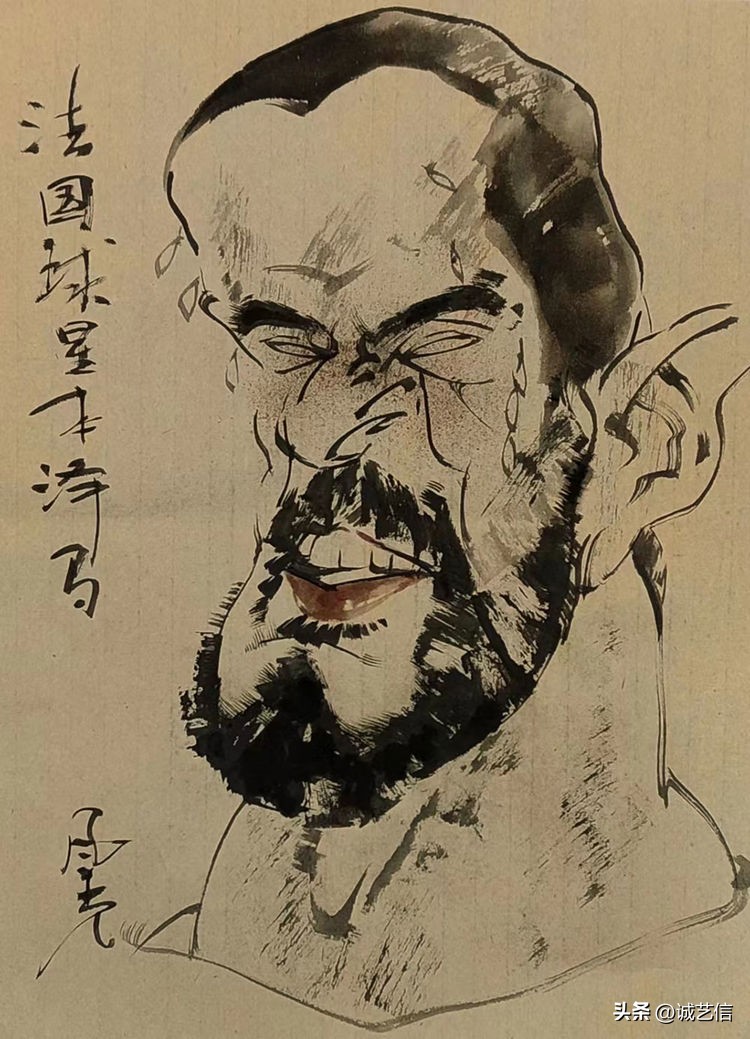 法国球星本泽马
头条 @诚艺信